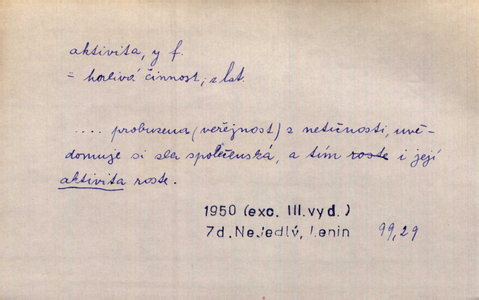 aktivita, y f.
= horlivá činnost; z lat.
.... probuzena (veřejnost) z netečnosti, uvě-
domuje si zla společenská, a tím roste i její
aktivita roste.
1950 (exc. III. vyd.)
Zd. Nejedlý, Lenin 99,29